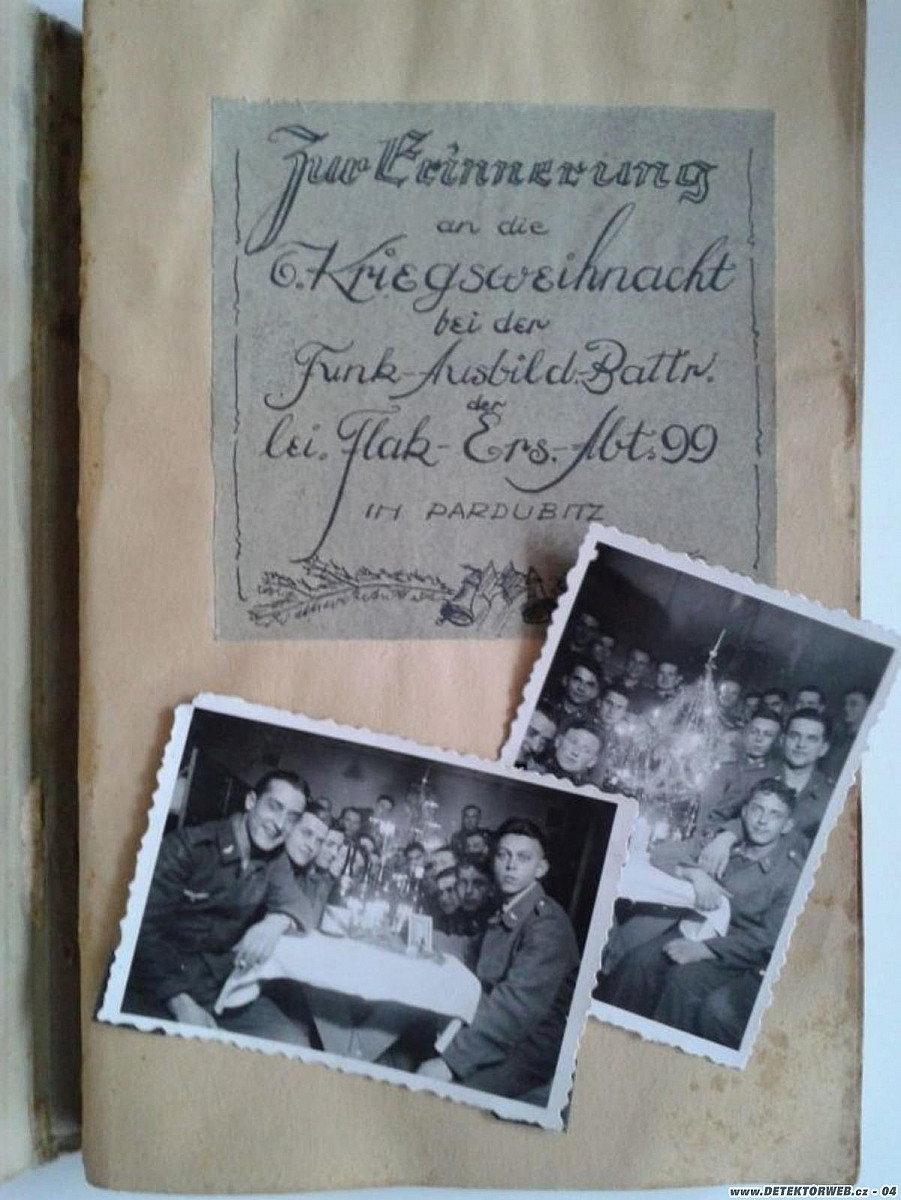 Zur Erinnerung
an die
6. Kriegsweihnacht
bei der
Funk-Ausbild.-Battr.
der
lei. Flak-Ers.-Abt. 99
IN PARDUBITZ
www.DETEKTORWEB.cz - 04